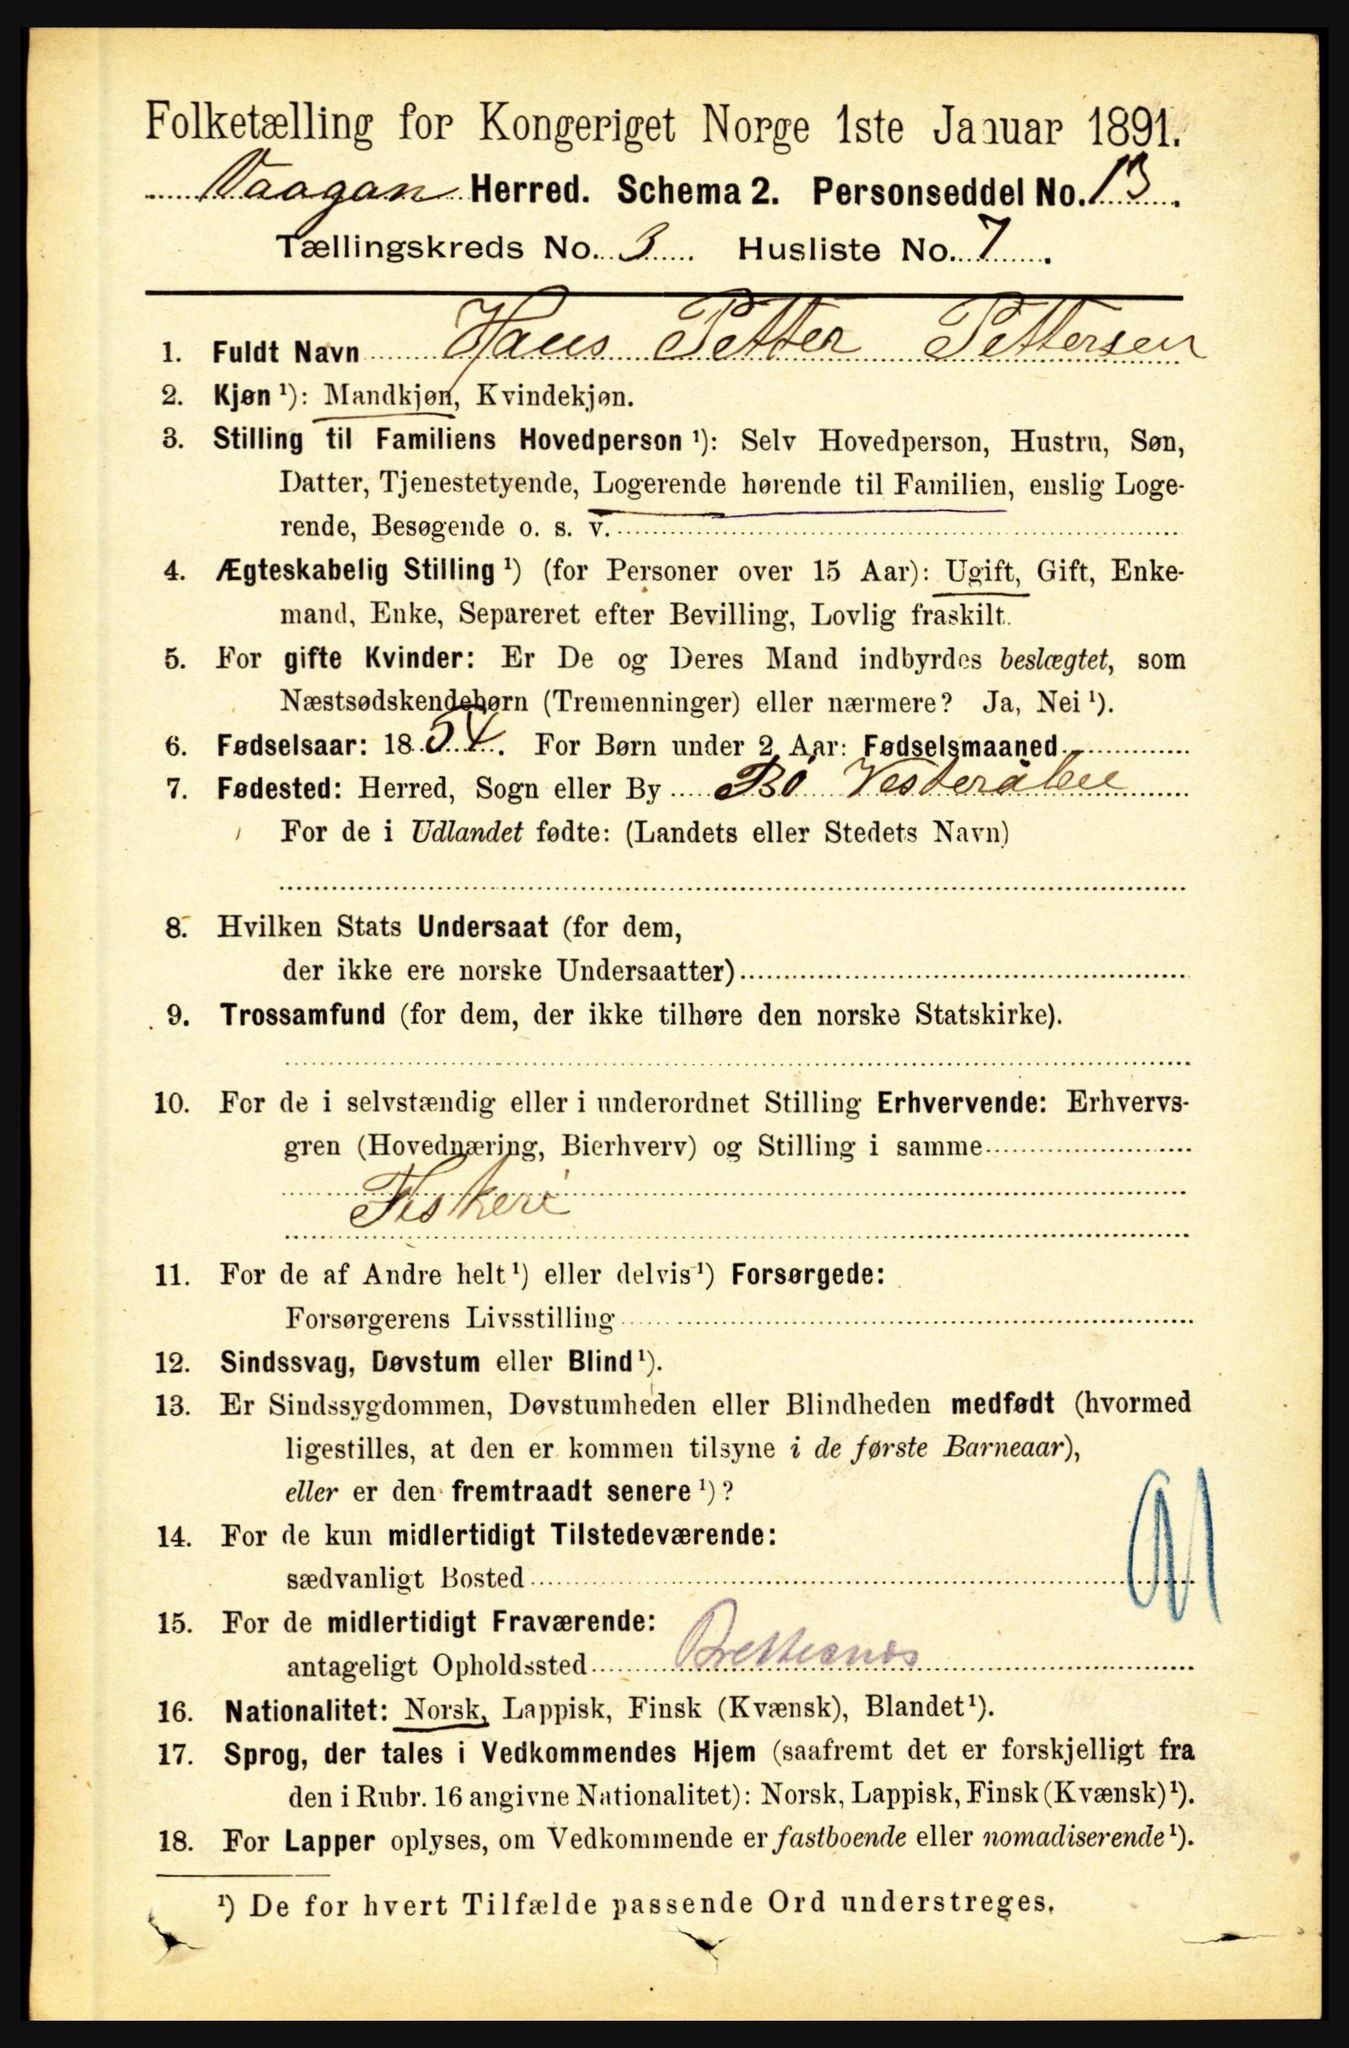 Folketælling for Kongeriget Norge 1ste Januar 1891.
Vaagan Herred. Schema 2. Personseddel No. 13.
Tællingskreds No. 3. Husliste No. 7.
1. Fuldt Navn Hans Petter Pettersen
2. Kjøn ¹): Mandkjøn, Kvindekjøn.
3. Stilling til Familiens Hovedperson ¹): Selv Hovedperson, Hustru, Søn,
Datter, Tjenestetyende, Logerende hørende til Familien, enslig Loge-
rende, Besøgende o. s. v.
4. Ægteskabelig Stilling ¹) (for Personer over 15 Aar): Ugift, Gift, Enke-
mand, Enke, Separeret efter Bevilling, Lovlig fraskilt.
5. For gifte Kvinder: Er De og Deres Mand indbyrdes beslægtet, som
Næstsødskendebørn (Tremenninger) eller nærmere? Ja, Nei ¹).
6. Fødselsaar: 1854. For Børn under 2 Aar: Fødselsmaaned
7. Fødested: Herred, Sogn eller By Bö Vesterålen
For de i Udlandet fødte: (Landets eller Stedets Navn)
8. Hvilken Stats Undersaat (for dem,
der ikke ere norske Undersaatter)
9. Trossamfund (for dem, der ikke tilhøre den norske Statskirke).
10. For de i selvstændig eller i underordnet Stilling Erhvervende: Erhvervs-
gren (Hovednæring, Bierhverv) og Stilling i samme
Fiskeri
11. For de af Andre helt ¹) eller delvis ¹) Forsørgede:
Forsørgerens Livsstilling
12. Sindssvag, Døvstum eller Blind ¹).
13. Er Sindssygdommen, Døvstumheden eller Blindheden medfødt (hvormed
ligestilles, at den er kommen tilsyne i de første Barneaar),
eller er den fremtraadt senere ¹)?
14. For de kun midlertidigt Tilstedeværende:
sædvanligt Bosted
15. For de midlertidigt Fraværende:
antageligt Opholdssted Brettesnes
16. Nationalitet: Norsk, Lappisk, Finsk (Kvænsk), Blandet ¹).
17. Sprog, der tales i Vedkommendes Hjem (saafremt det er forskjelligt fra
den i Rubr. 16 angivne Nationalitet): Norsk, Lappisk, Finsk (Kvænsk) ¹).
18. For Lapper oplyses, om Vedkommende er fastboende eller nomadiserende ¹).
¹) De for hvert Tilfælde passende Ord understreges.